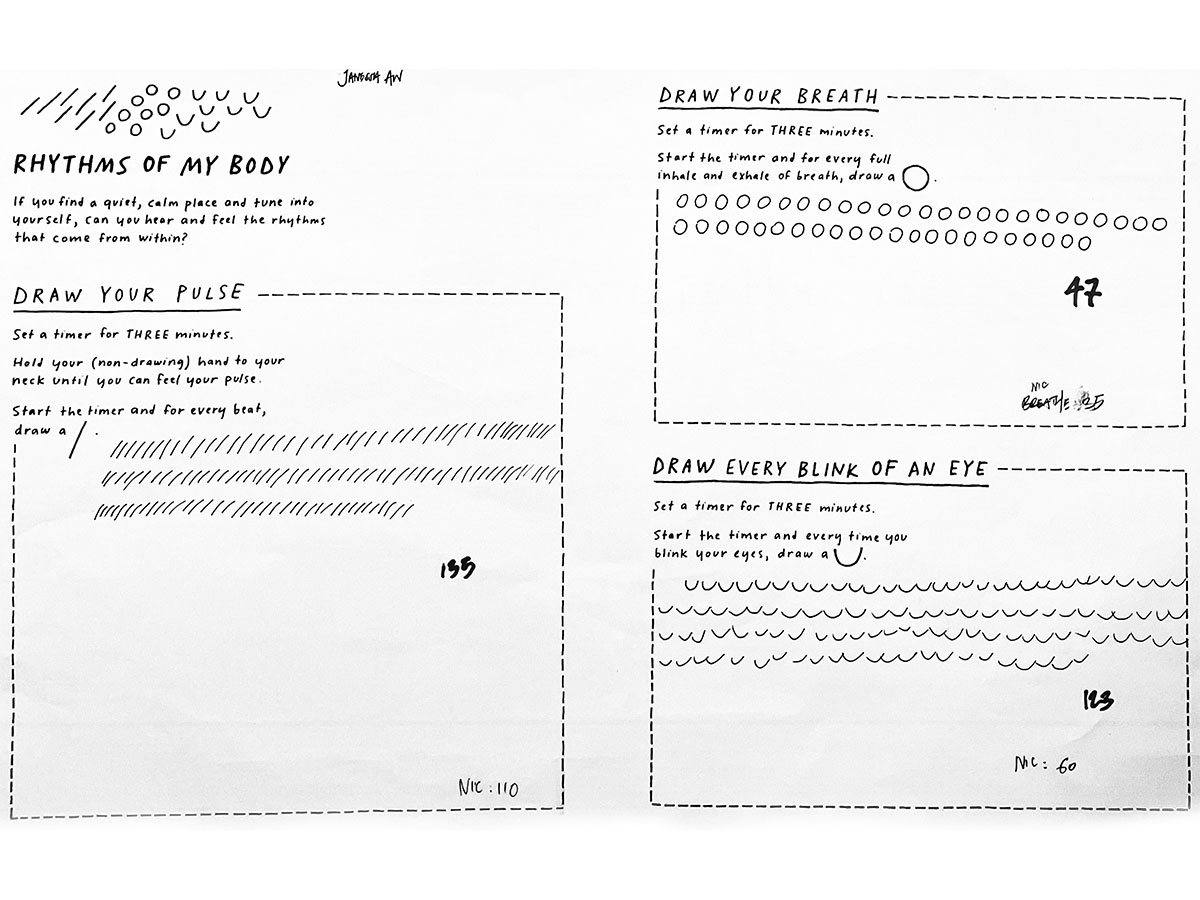 JANECIA AW
RHYTHMS OF MY BODY
If you find a quiet, calm place and tune into
yourself, can you hear and feel the rhythms
that come from within?
DRAW YOUR PULSE
Set a timer for THREE minutes.
Hold your (non-drawing) hand to your
neck until you can feel your pulse.
Start the timer and for every beat,
draw a / .
155
NIC : 110
DRAW YOUR BREATH
Set a timer for THREE minutes.
Start the timer and for every full
inhale and exhale of breath, draw a .
47
NIC
BREATHE
DRAW EVERY BLINK OF AN EYE
Set a timer for THREE minutes.
Start the timer and every time you
blink your eyes, draw a .
123
NIC : 60